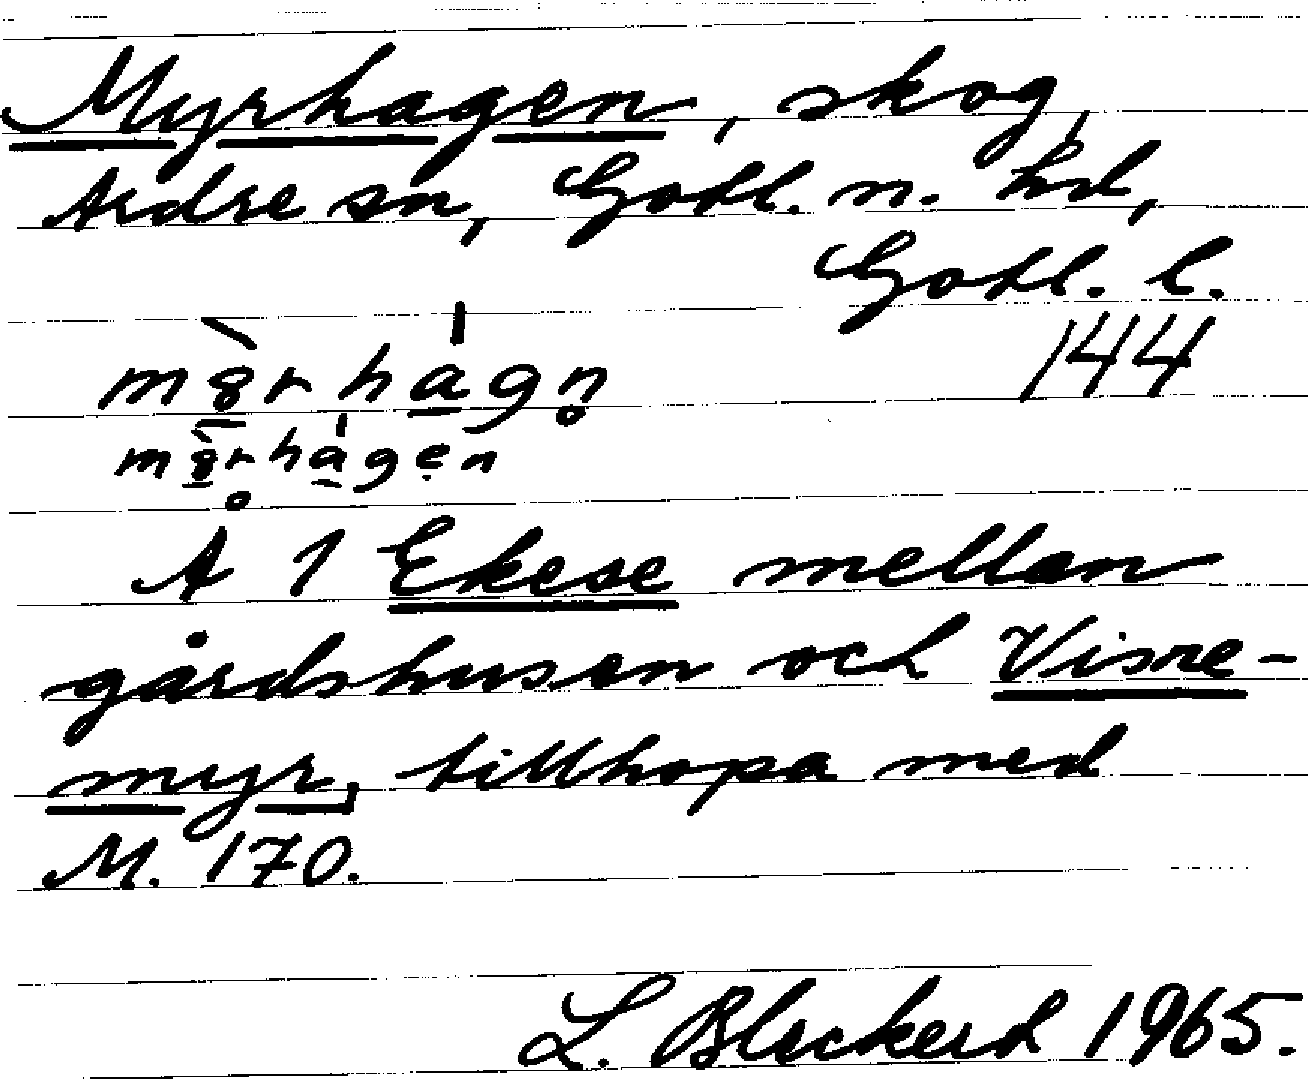 Myrhagen, skog,
Ardre sn, Gotl. n. hd,
Gotl. l.
144
Å 1 Ekese mellan
gårdshusen och Visne-
myr, tillhopa med
M. 170.
L. Bleckerd 1965.